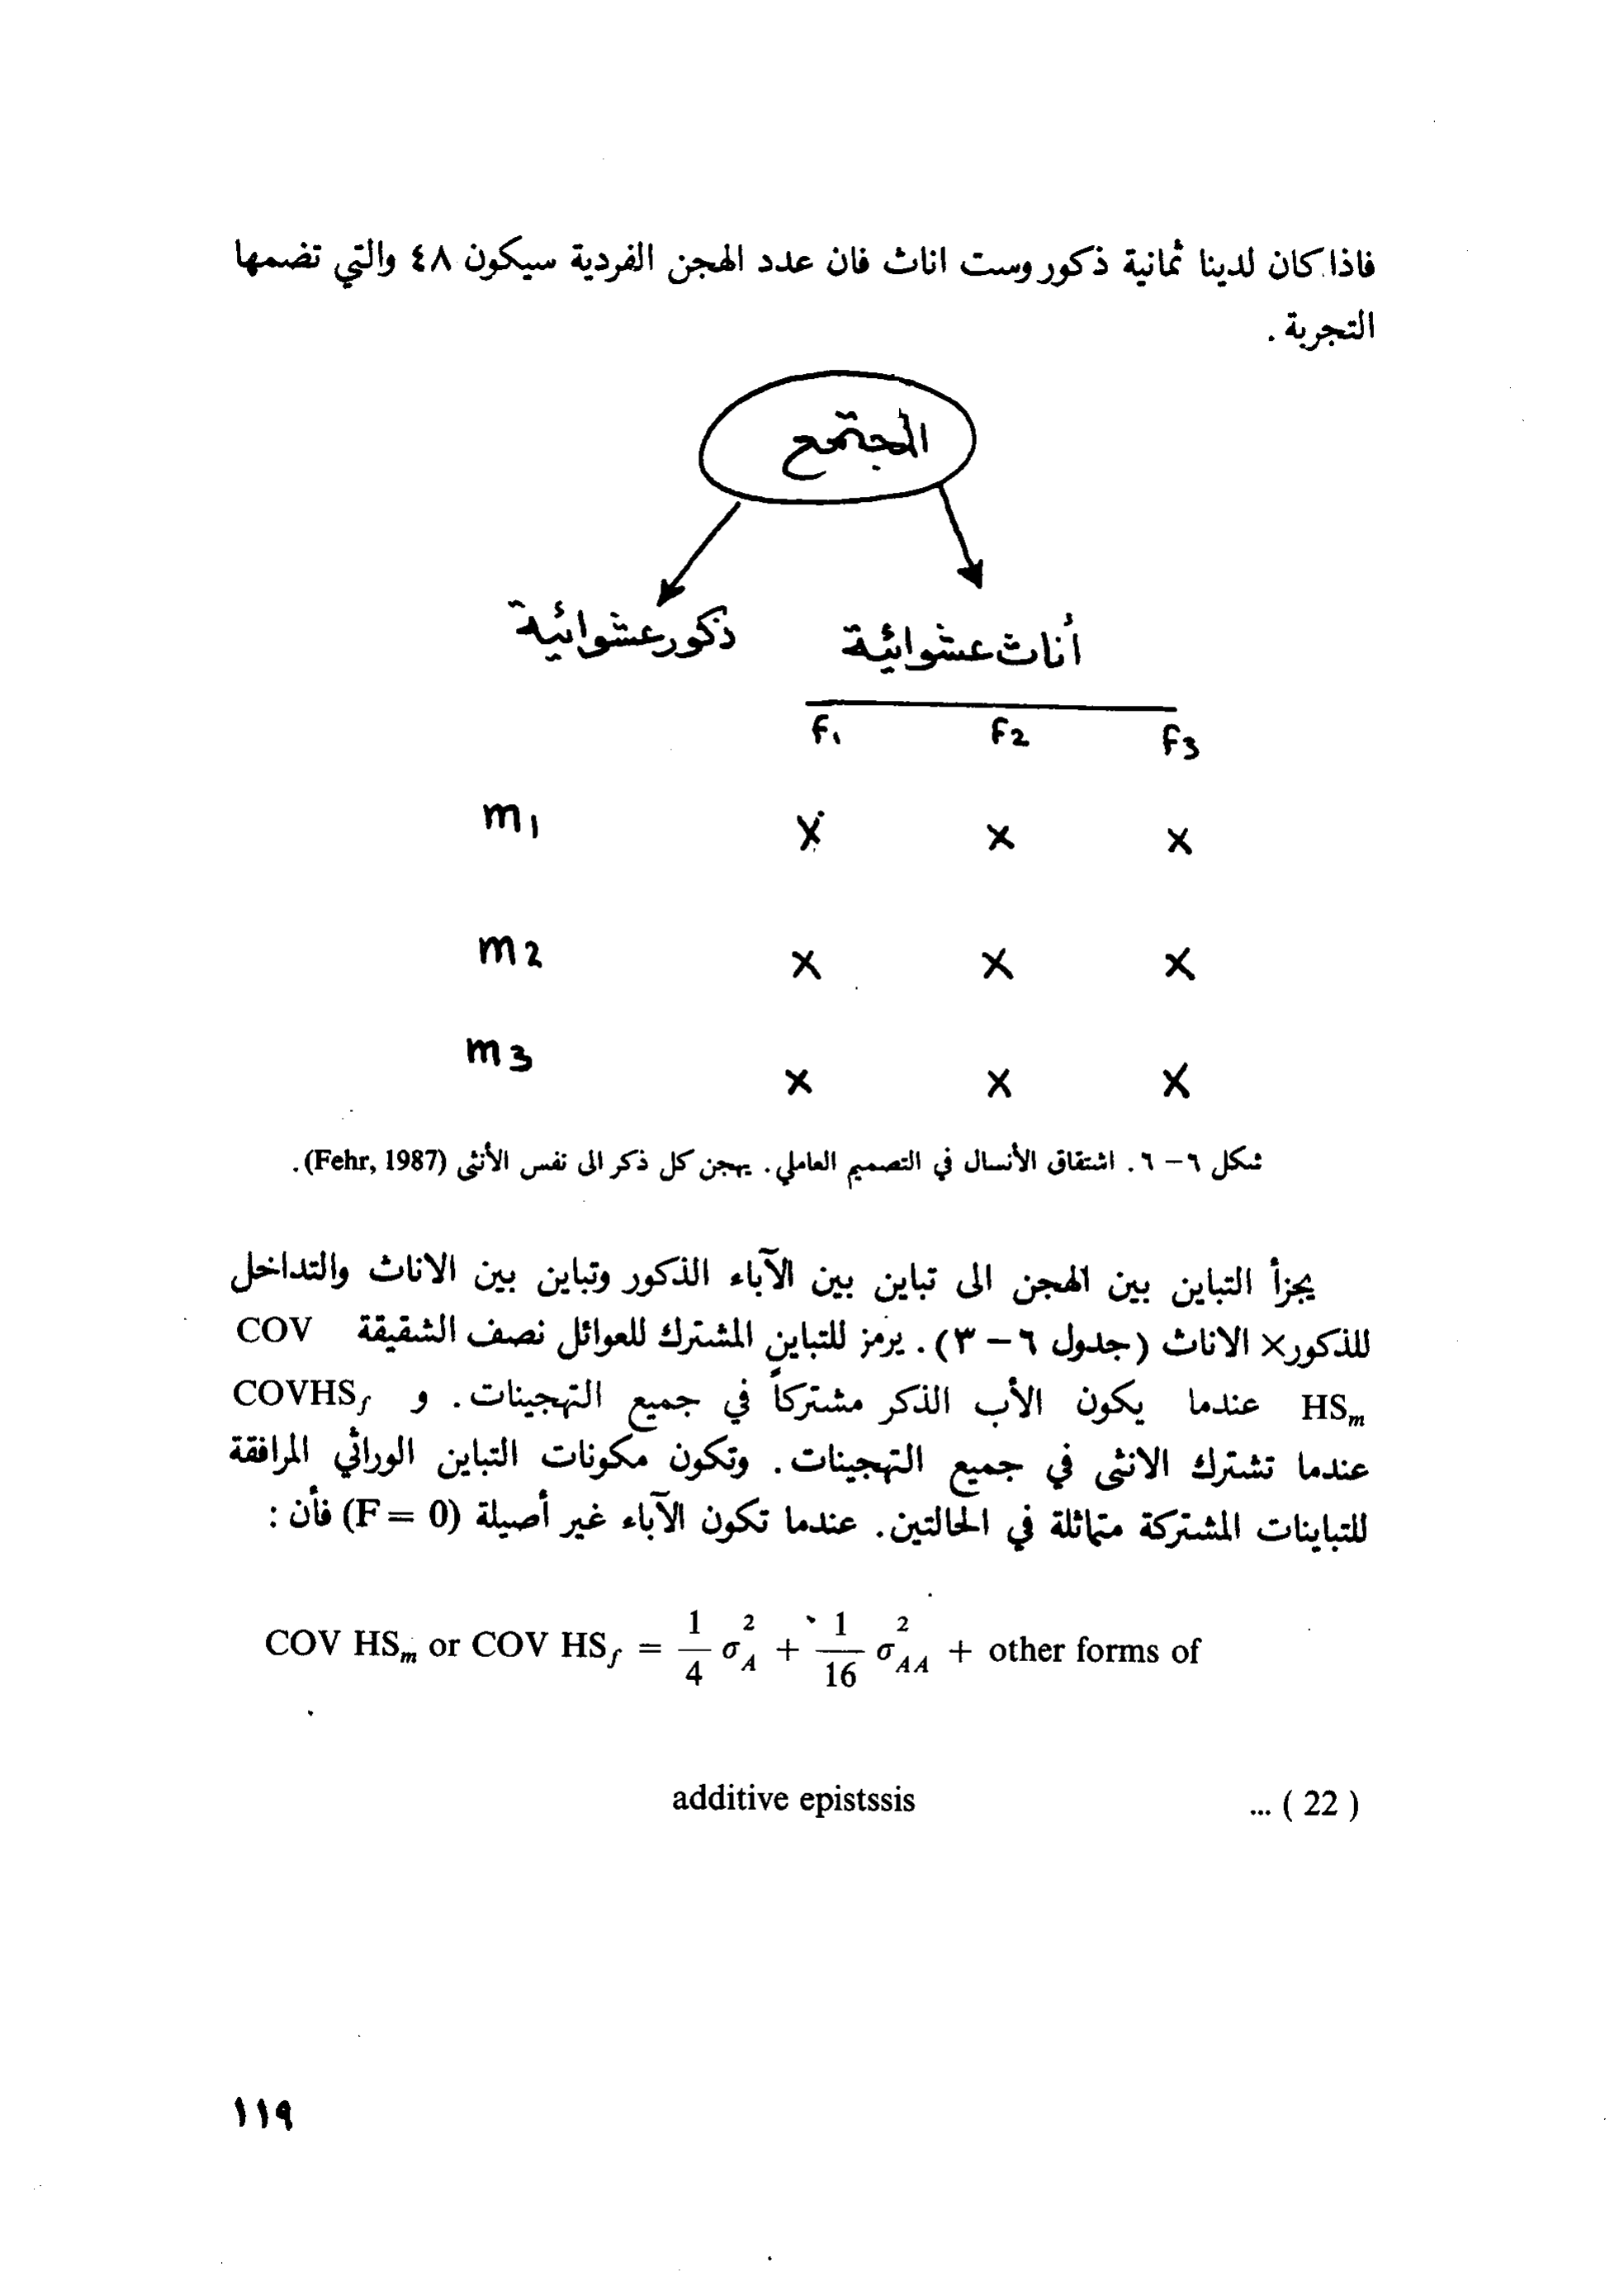 فاذا كان لدينا ثمانية ذكور وست اناث فان عدد الهجن الفردية سيكون ٤٨ والتي تضمها
التجربة .
المجتمع
ذكور عشوائية أناث عشوائية
f1 f2 f3
m1 x x x
m2 x x x
m3 x x x
شكل ٦ – ٦ . اشتقاق الأنسال في التصميم العاملي . يهجن كل ذكر الى نفس الأنثى (Fehr, 1987) .
يجزأ التباين بين الهجن الى تباين بين الآباء الذكور وتباين بين الاناث والتداخل
للذكور× الاناث (جدول ٦ – ٣) . يرمز للتباين المشترك للعوائل نصف الشقيقة COV
HSm عندما يكون الأب الذكر مشتركاً في جميع التهجينات . و COVHSf
عندما تشترك الانثى في جميع التهجينات . وتكون مكونات التباين الوراثي المرافقة
للتباينات المشتركة متماثلة في الحالتين . عندما تكون الآباء غير أصيلة (F = 0) فأن :
COV HSm or COV HSf = 1/4 σ²A + 1/16 σ²AA + other forms of
additive epistssis ... ( 22 )
١١٩